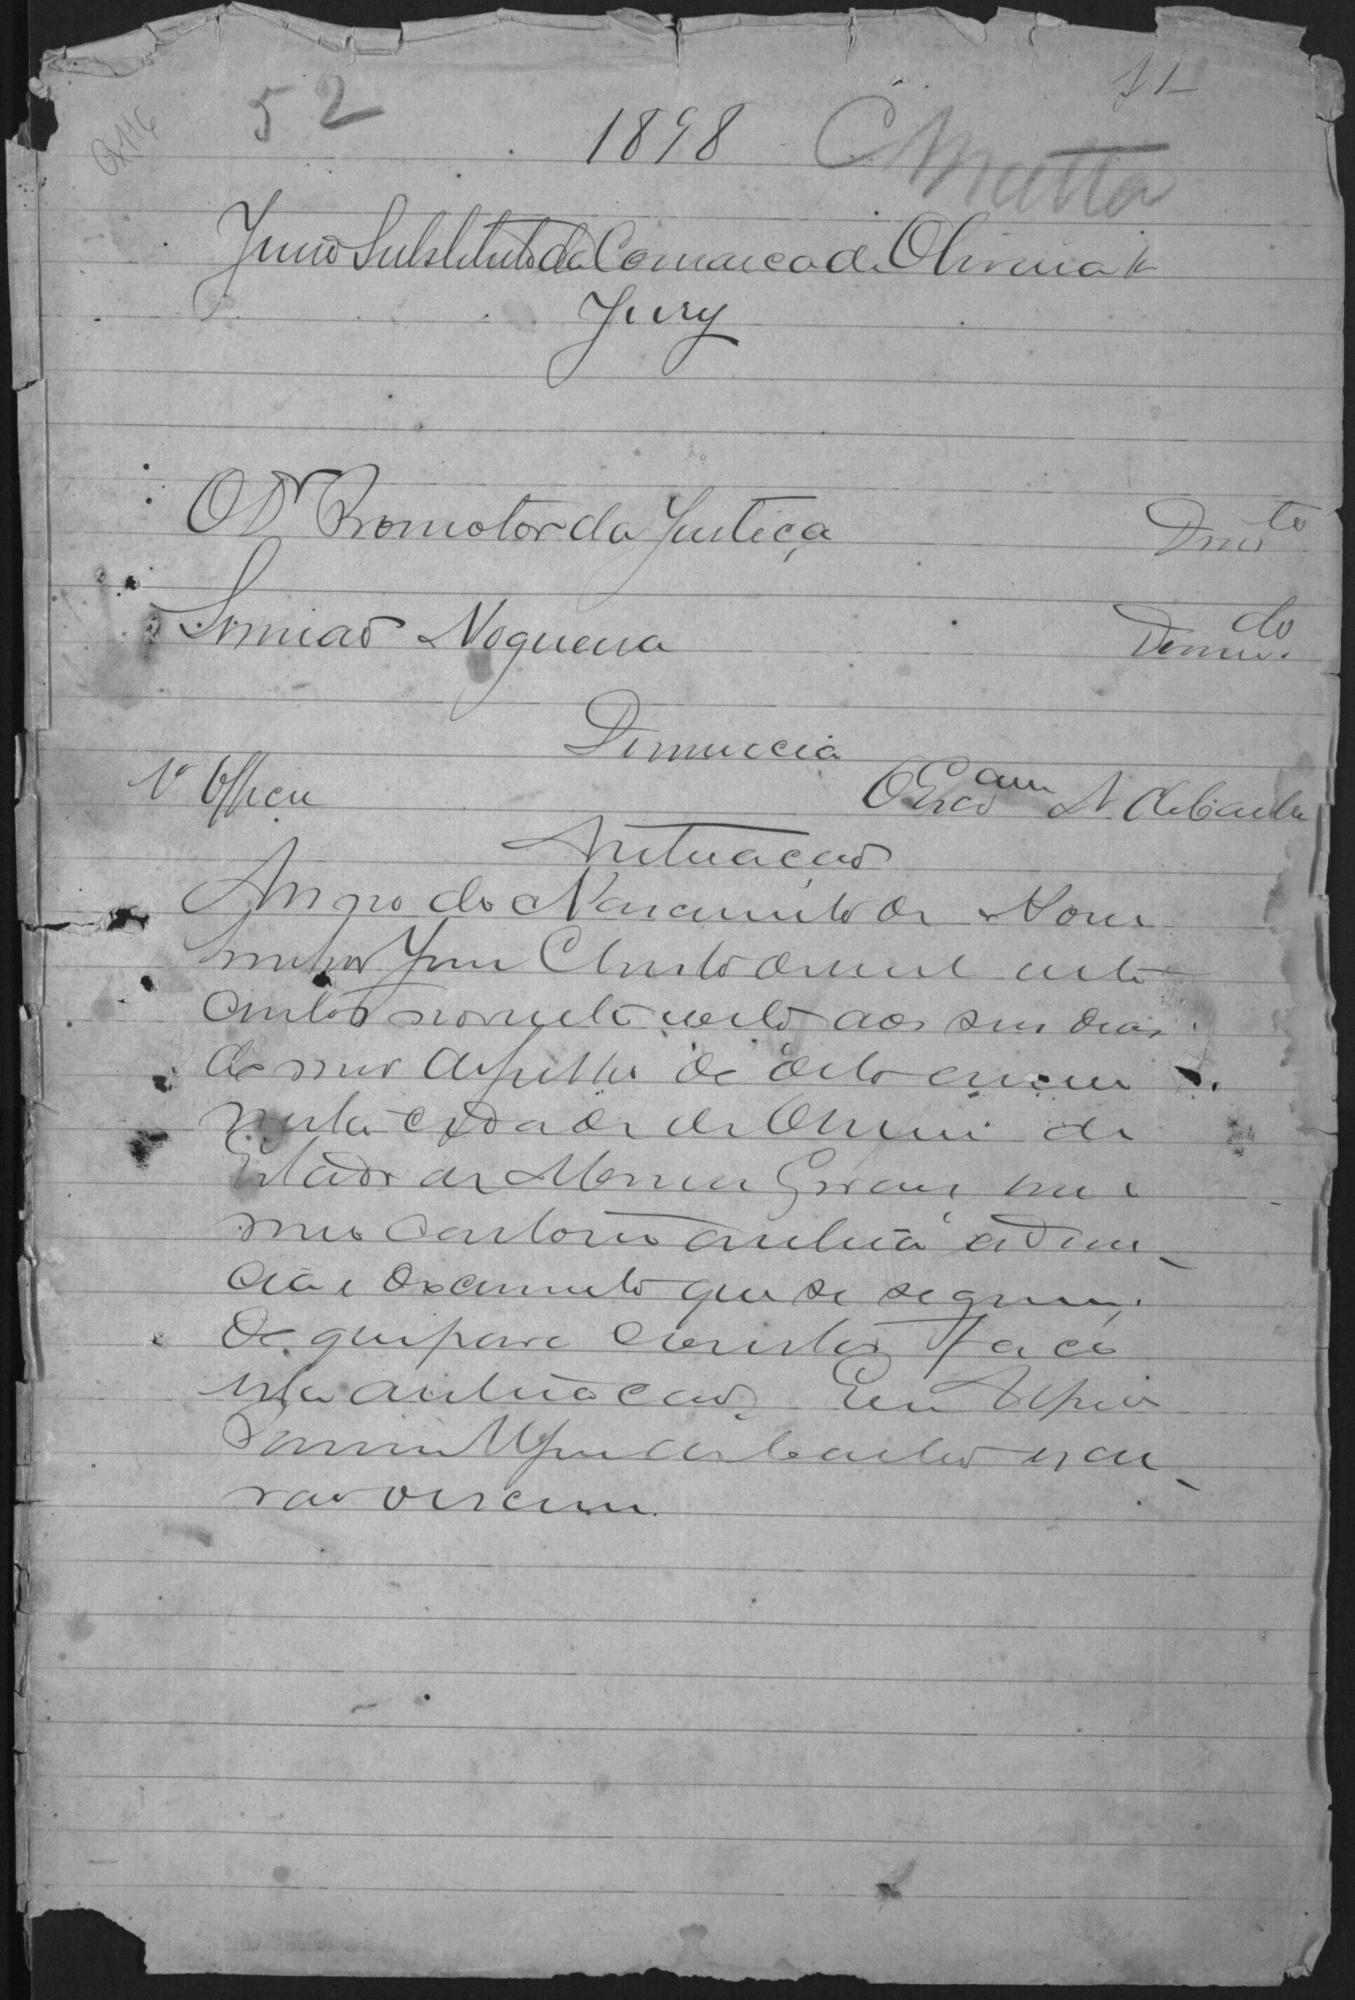 52
1898 CMatta
Juizo Substituto da Comarca de Oliveira
Jury
O Dr Promotor da Justiça Denunte
Nogueira Denundo
Denuncia
1º Officio O Escram
Autuação
Anno do Nascimento de Nosso
Senhor Jesus Christo de mil oito
centos noventa e oito aos seis dias
do mes de de dito anno
nesta cidade de Oliveira do
Estado de Minas Geraes em
meu cartorio autuei a denun-
cia e documento que se seguem;
do que para constar faço
esta autuação. Eu
escri-
vão o escrevi.